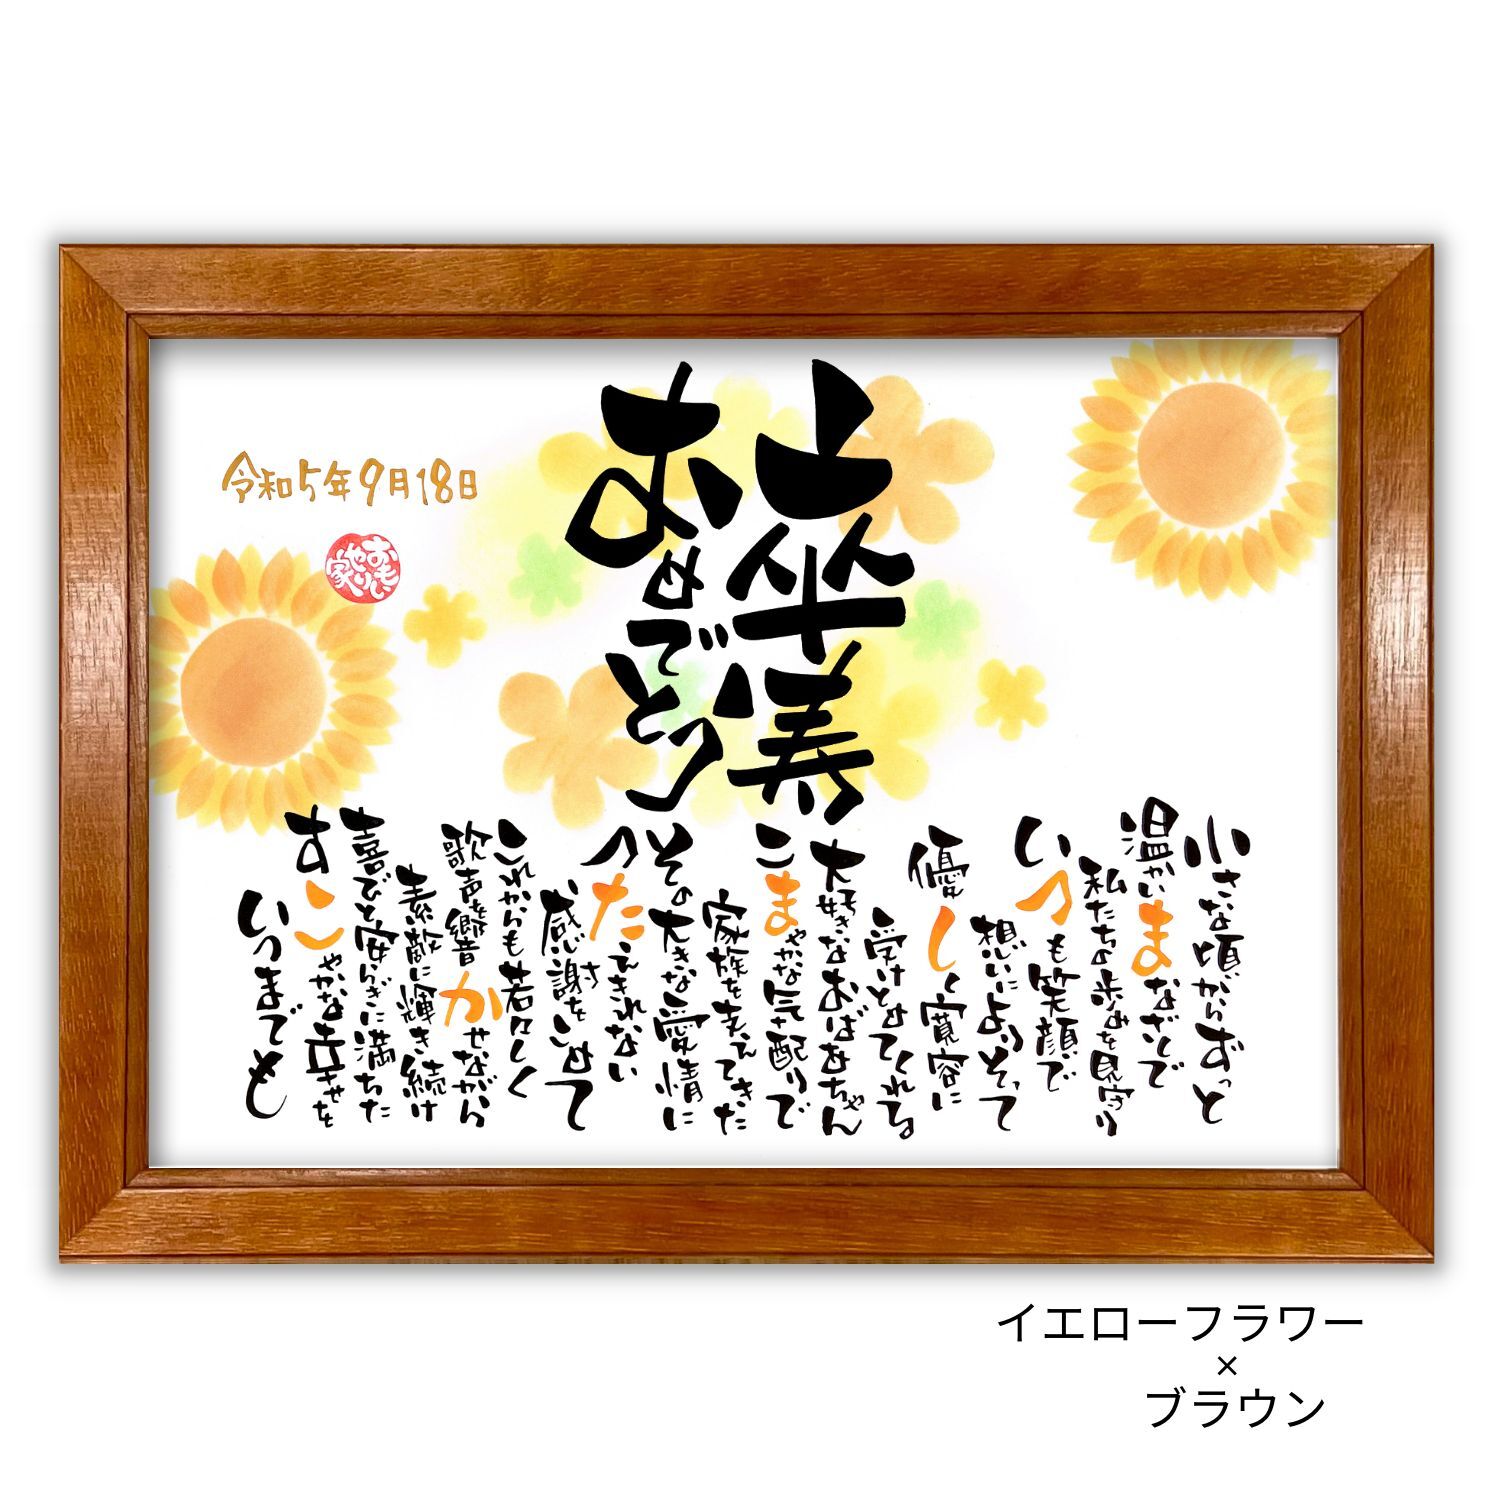 傘寿
おめでとう
令和5年9月18日
おもい
やり
家
小さな頃からずっと
温かいまなざしで
私たちの歩みを見守り
いつも笑顔で
想いによりそって
優しく寛容に
受けとめてくれる
大好きなおばあちゃん
こまやかな気配りで
家族を支えてきた
その大きな愛情に
つたえきれない
感謝をこめて
これからも若々しく
歌声を響かせながら
素敵に輝き続け
喜びと安らぎに満ちた
すこやかな幸せを
いつまでも
イエローフラワー
×
ブラウン